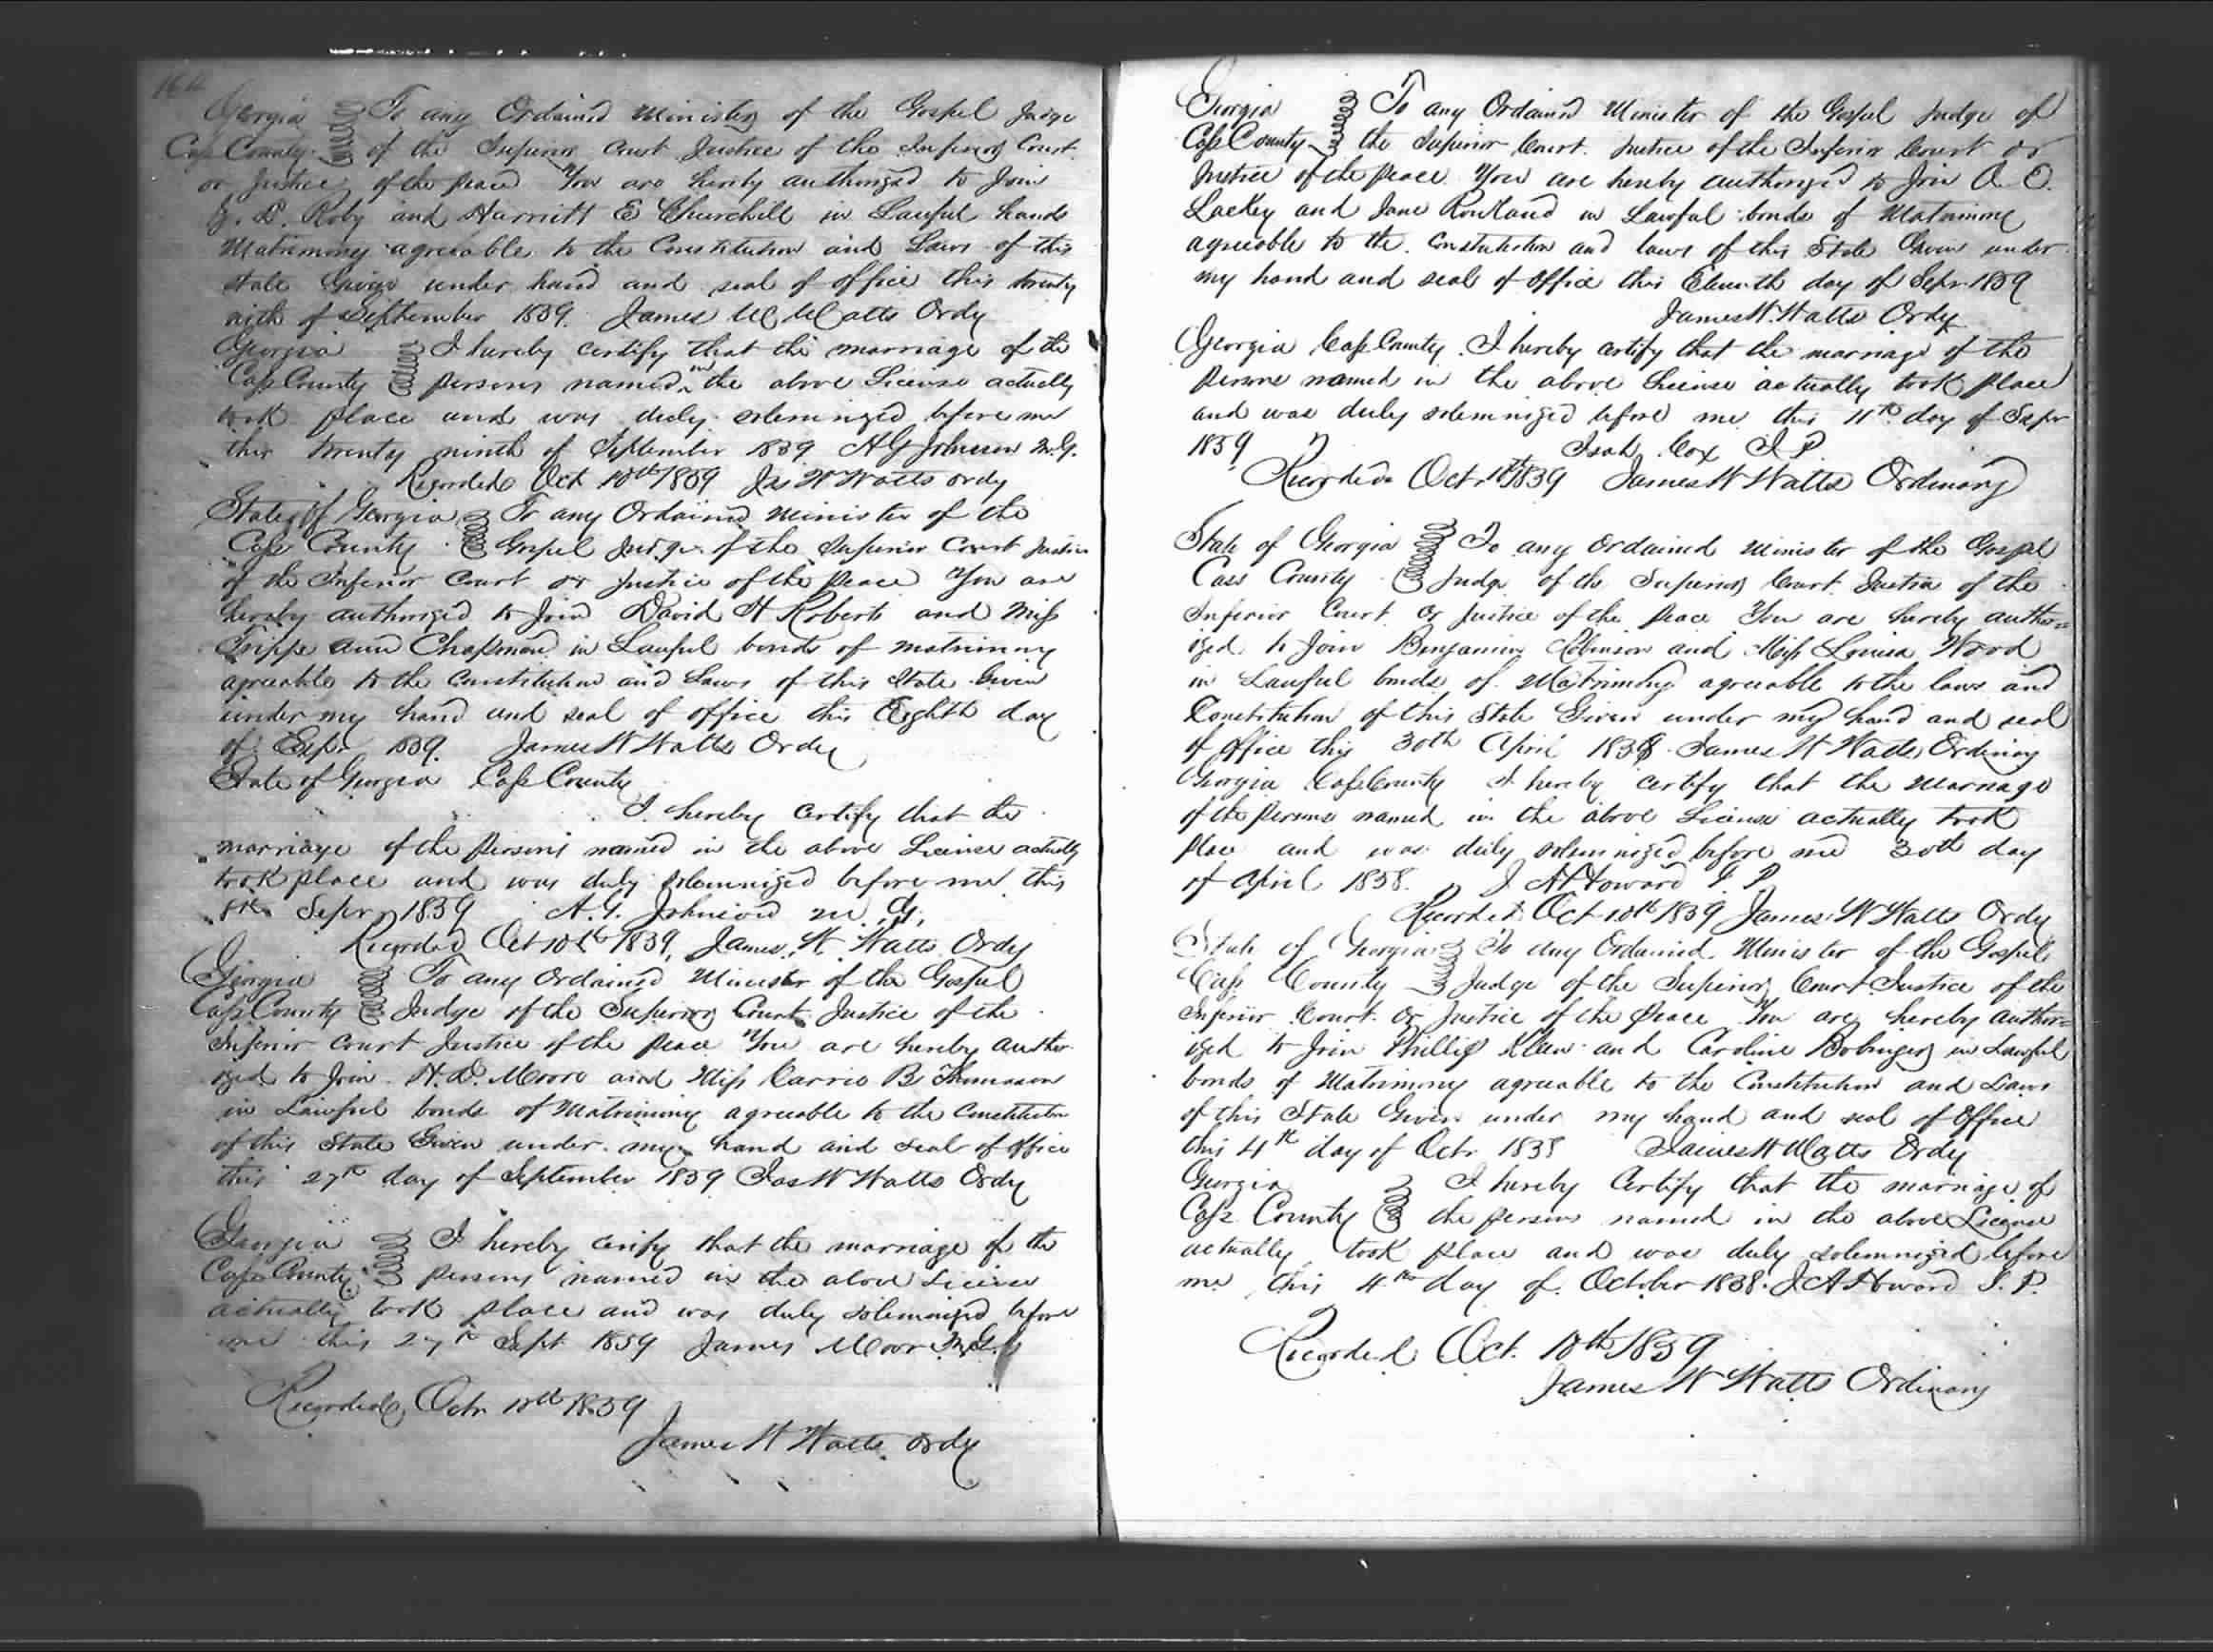 164
Georgia To any Ordained Minister of the Gospel Judge
Cass County of the Superior Court Justice of the Inferior Court
or Justice of the peace You are hereby authorized to Join
D. Roby and Harriett E Churchill in Lawful bands
Matrimony agreeable to the Constitution and Laws of this
state Given under hand and seal of office this twenty
of September 1859. James W Watts Ordy
Georgia I hereby certify that the marriage of the
Cass County persons named in the above License actually
took place and was duly solemnized before me
this twenty ninth of September 1859 A G Johnson M.G.
Recorded Oct 10th 1859 Jas W Watts ordy
State of Georgia To any Ordained Minister of the
Cass County Gospel Judge of the Superior Court Justice
of the Inferior Court or Justice of the peace You are
hereby authorized to Join David H Roberts and Miss
Ann Chapman in Lawful bonds of matrimony
agreeable to the Constitution and Laws of this State Given
under my hand and seal of office this Eighth day
of Sepr 1859. James W Watts Ordy
State of Georgia Cass County
I hereby certify that the
marriage of the persons named in the above License actually
took place and was duly solemnized before me this
8th Sepr 1859 A. G. Johnson M. G.
Recorded Oct 10th 1859, James W Watts Ordy
Georgia To any Ordained Minister of the Gospel
Cass County Judge of the Superior Court Justice of the
Inferior Court Justice of the peace You are hereby author
ized to Join H. D. Moore and Miss Carrie B Thomason
in Lawful bonds of Matrimony agreeable to the Constitution
of this State Given under my hand and seal of office
this 27th day of September 1859 Jas W Watts Ordy
Georgia I hereby certify that the marriage of the
Cass County persons named in the above License
actually took place and was duly solemnized before
me this 27th Sept 1859 James Moor M.G.
Recorded Octr 10th 1859
James W Watts Ordy
Georgia To any Ordained Minister of the Gospel Judge of
Cass County the Superior Court Justice of the Inferior Court or
Justice of the Peace You are hereby authorized to Join A. O.
Lackey and Jane Rowland in Lawful bonds of Matrimony
agreeable to the Constitution and laws of this State Given under
my hand and seal of office this Eleventh day of Sepr 1859
James W. Watts Ordy
Georgia Cass County I hereby certify that the marriage of the
persons named in the above License actually took place
and was duly solemnized before me this 11th day of Sepr
1859 Cox J. P.
Recorded Oct 10th 1859 James W Watts Ordinary
State of Georgia To any ordained Minister of the Gospel
Cass County Judge of the Superior Court Justice of the
Inferior Court or Justice of the peace You are hereby author=
ized to Join Benjamin Robinson and Miss Louisa Wood
in Lawful bonds of Matrimony agreeable to the laws and
Constitution of this State Given under my hand and seal
of office this 30th April 1858 James W Watts Ordinary
Georgia Cass County I hereby certify that the Marriage
of the persons named in the above License actually took
place and was duly solemnized before me 30th day
of April 1858. J A Howard J P
Recorded Oct 10th 1859 James W Watts Ordy
State of Georgia To any Ordained Minister of the Gospel
Cass County Judge of the Superior Court Justice of the
Inferior Court or Justice of the Peace You are hereby author=
ized to Join Phillip Klein and Caroline in Lawful
bonds of Matrimony agreeable to the Constitution and Laws
of this State Given under my hand and seal of Office
this 4th day of Octr 1858 James W Watts Ordy
Georgia I hereby Certify that the marriage of
Cass County the persons named in the above License
actually took place and was duly solemnized before
me this 4th day of October 1858. J A Howard J. P.
Recorded Oct. 10th 1859
James W Watts Ordinary